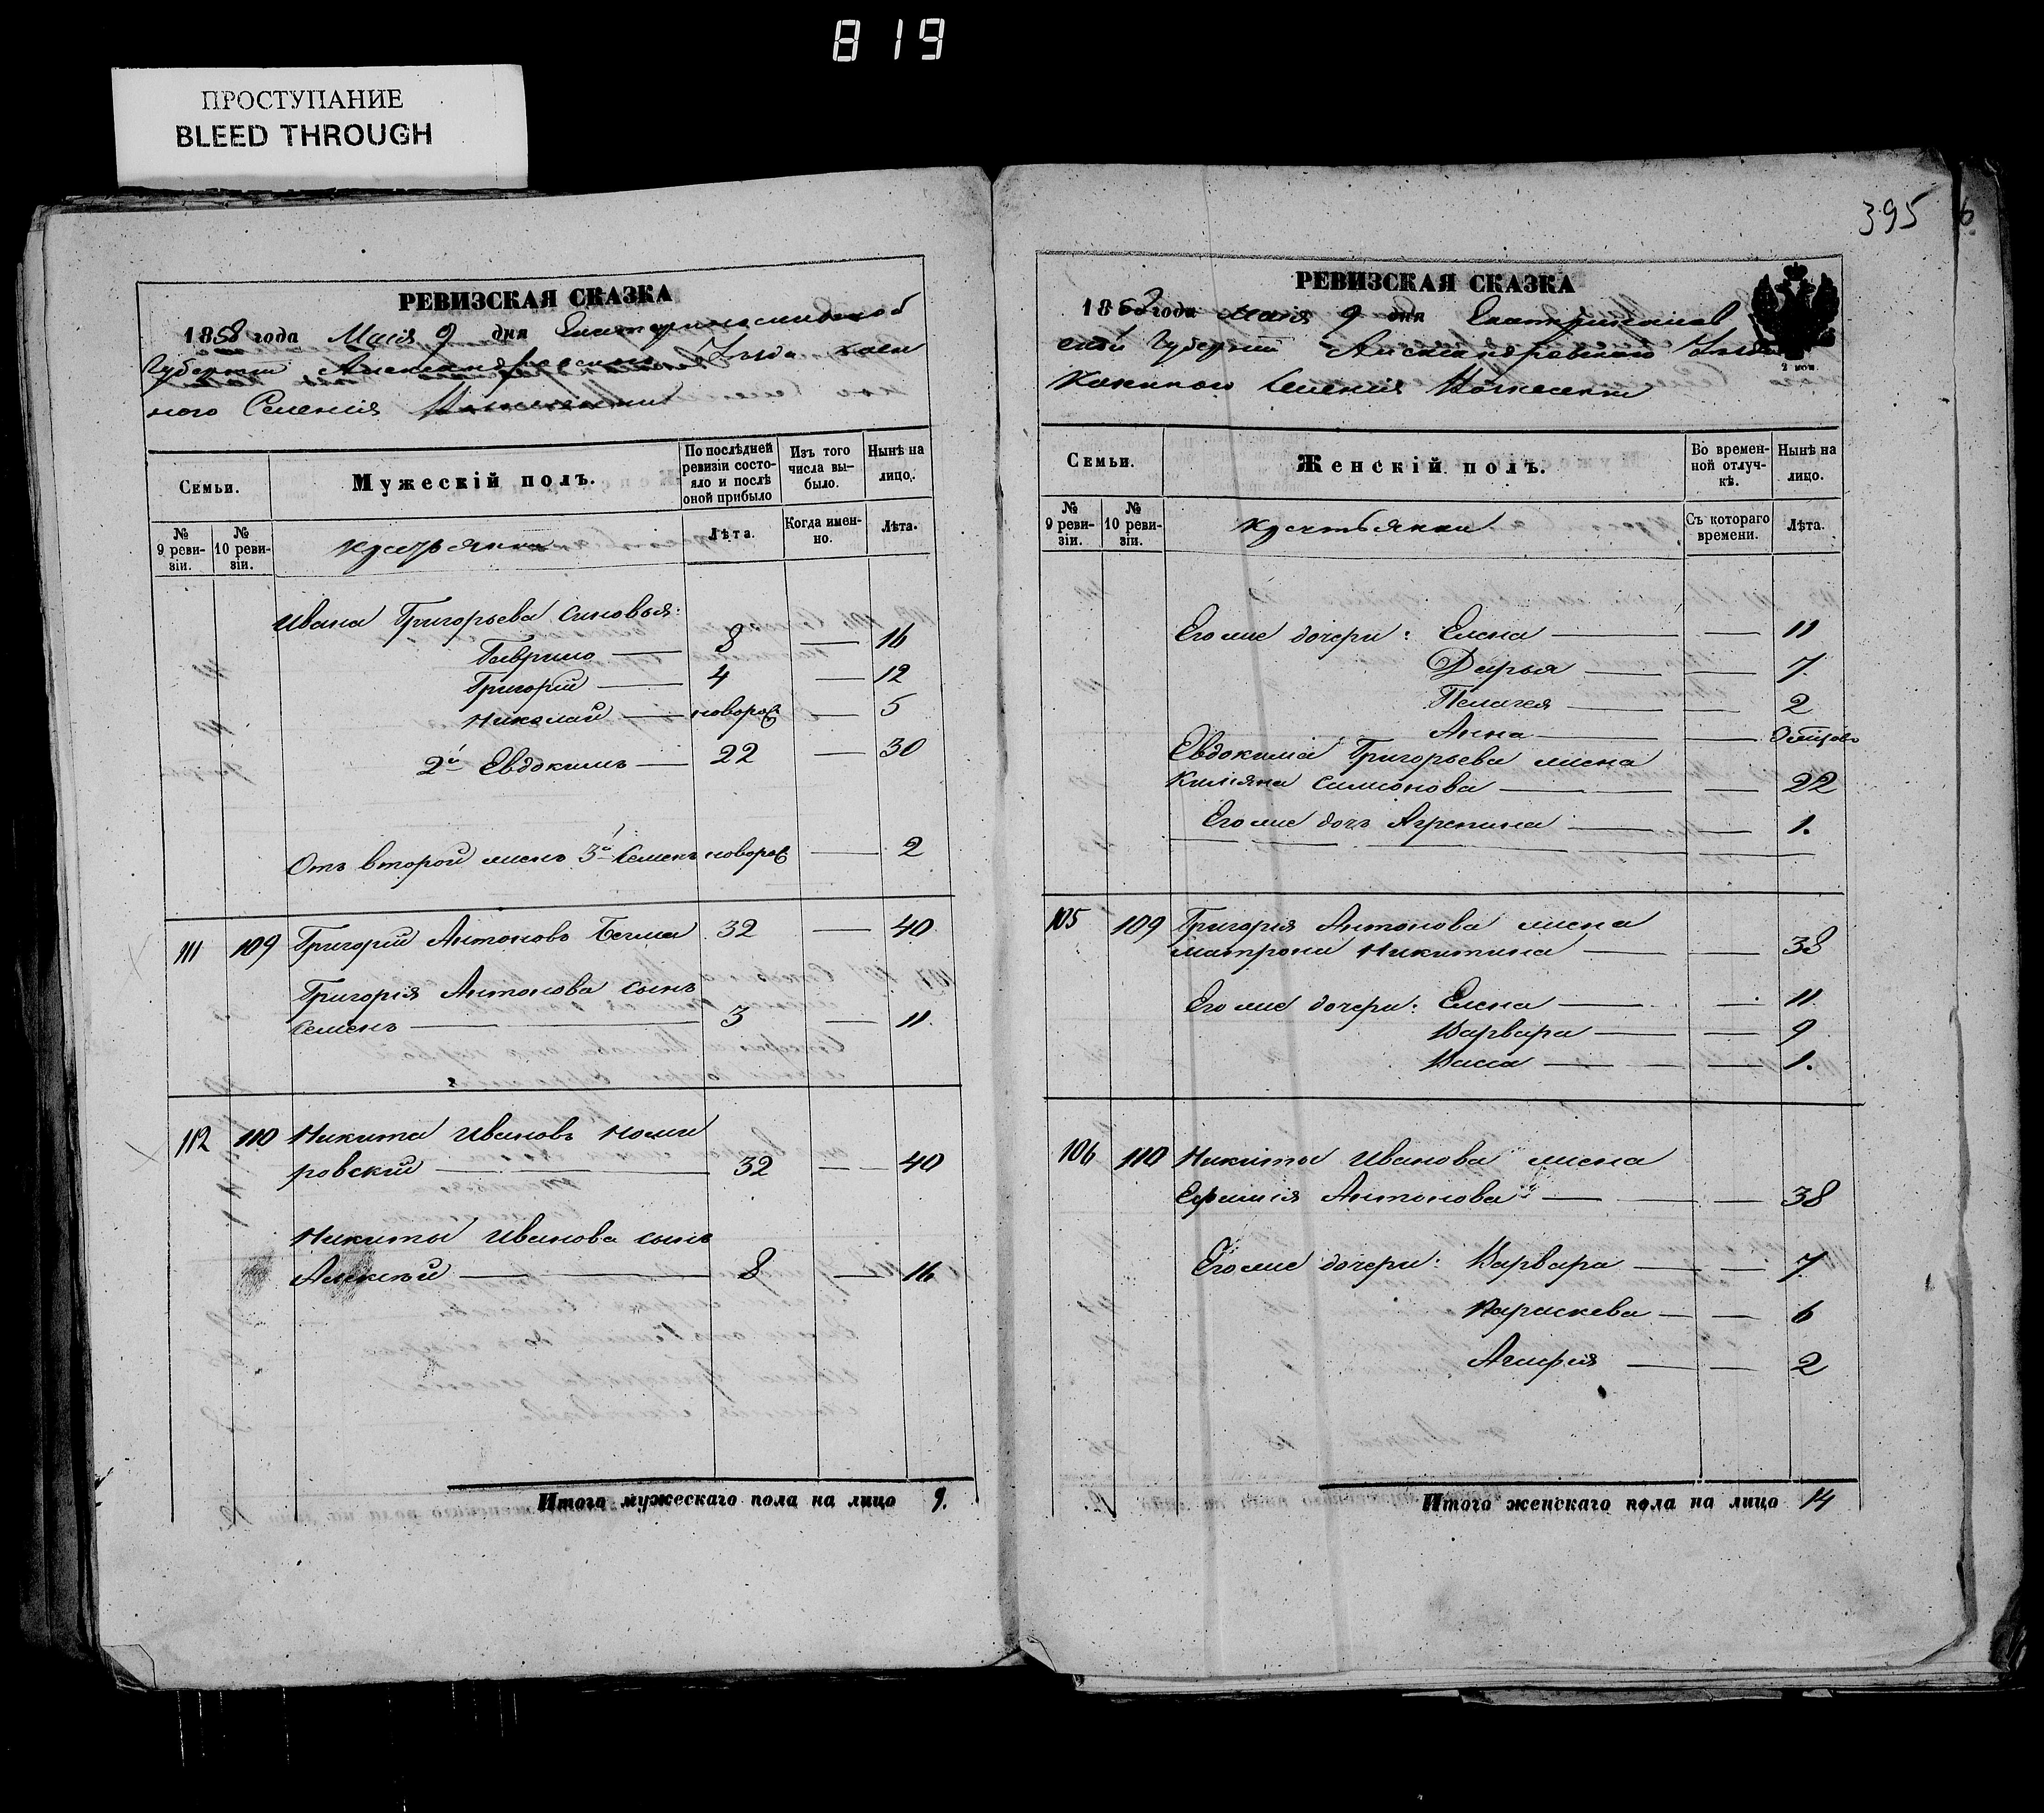 819
ПРОСТУПАНИЕ
BLEED THROUGH
РЕВИЗСКАЯ СКАЗКА
1858 года Маія 9 дня Екатеринославской
Губерніи Александровского Уезда казен
ного Селенія
Семьи.
Мужескій полъ.
По послѣдней ревизіи состояло и послѣ оной прибыло
Изъ того числа выбыло.
Нынѣ на лицо.
№ 9 ревизіи.
№ 10 ревизіи.
крестьяне
Лѣта.
Когда именно.
Лѣта.
Ивана Григорьева синовья:
Гаврило — 8 — 16
Григорій — 4 — 12
Николай — новорож — 5
2й Евдокимъ — 22 — 30
Отъ второй жены 3й Семенъ новорож — 2
111 109 Григорій Антоновъ Бегма 32 — 40
Григорія Антонова сынъ
Семенъ — 3 — 11
112 110 Никита Ивановъ
ровский — 32 — 40
Никиты Иванова сынъ
Алексѣй — 8 — 16
Итого мужескаго пола на лицо 9.
395
РЕВИЗСКАЯ СКАЗКА
1858 года Маія 9 дня Екатеринослав
ской Губерніи Александровского Уезда
Казенного Селенія
Семьи.
Женскій полъ.
Во временной отлучкѣ.
Нынѣ на лицо.
№ 9 ревизіи.
№ 10 ревизіи.
крестьянки
Съ котораго времени.
Лѣта.
Его же дочери: Елена — — 11
Дарья — — 7
Пелагея — — 2
Анна — —
Евдокима Григорьева жена
Симионова — — 22
Его же дочь Агрепина — — 1.
105 109 Григорія Антонова жена
Матрона Никитина — — 38
Его же дочери: Елена — — 11
Варвара — — 9
Васса — — 1.
106 110 Никиты Иванова жена
Ефимія Антонова — — 38
Его же дочери: Варвара — — 7
Параскева — — 6
Агафія — — 2
Итого женскаго пола на лицо 14